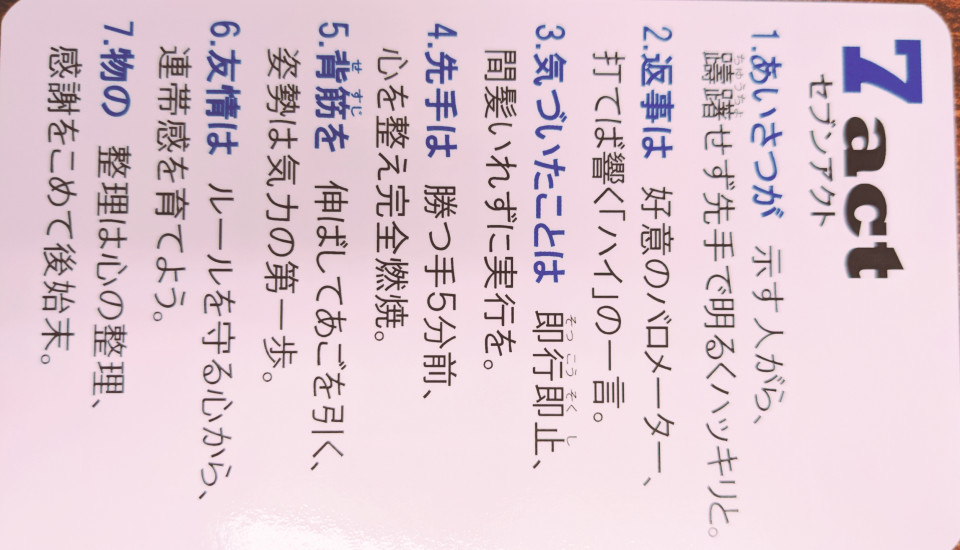 7 act
セブンアクト
1.あいさつが 示す人がら、
躊躇せず先手で明るくハッキリと。
2.返事は 好意のバロメーター、
打てば響く「ハイ」の一言。
3.気づいたことは 即行即止、
間髪いれずに実行を。
4.先手は 勝つ手5分前、
心を整え完全燃焼。
5.背筋を 伸ばしてあごを引く、
姿勢は気力の第一歩。
6.友情は ルールを守る心から、
連帯感を育てよう。
7.物の 整理は心の整理、
感謝をこめて後始末。